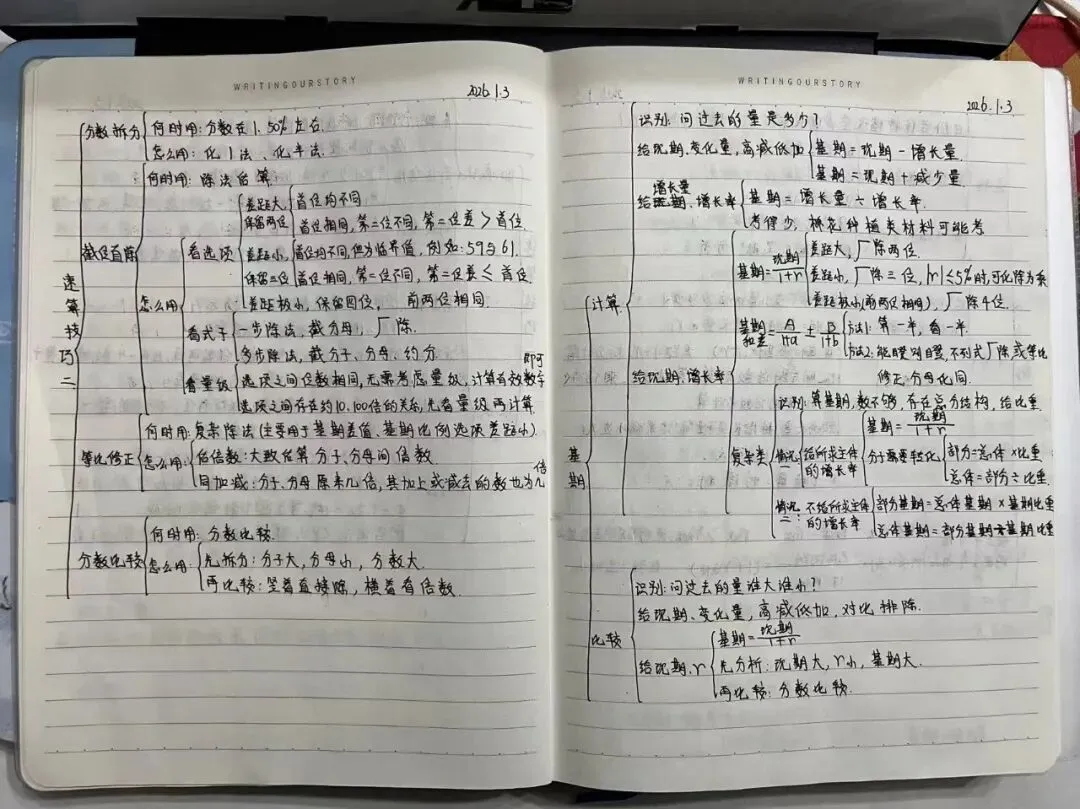 WRITINGOURSTORY
2026.1.3
速算技巧二
分数拆分
何时用:分数在1.50%左右
怎么用:化1法、化半法.
截位直除
何时用:除法估算.
怎么用:
看选项
差距大,保留两位
首位均不同
首位相同,第二位不同,第二位差>首位.
差距小,保留三位
首位均不同,但为临界值,例如:59与61.
首位相同,第二位不同,第二位差≤首位.
差距极小,保留四位, 前两位相同.
看式子
一步除法,截分母,厂除.
多步除法,截分子、分母、约分.
看量级
选项之间位数相同,无需考虑量级,计算有效数字即可
选项之间存在约10、100倍的关系,先看量级再计算.
等比修正
何时用:复杂除法(主要用于基期差值、基期比例选项差距小).
怎么用:
估倍数:大致估算分子、分母间倍数.
同加减:分子、分母原来几倍,其加上或减去的数也为几倍
分数比较
何时用:分数比较.
怎么用:
先拆分:分子大,分母小,分数大.
再比较:竖着直接除,横着看倍数.
WRITINGOURSTORY
2026.1.3
基期
计算
识别:问过去的量是多少?
给现期、变化量,高减低加
基期=现期-增长量.
基期=现期+减少量
给现期、增长率
增长量
基期=增长量÷增长率.
考得少,棉花种植类材料可能考
给现期、增长率
基期=现期/1+r
差距大,厂除两位.
差距小,厂除三位,|r|≤5%时,可化除为乘
差距极小(前两位相同),厂除4位.
基期和差=A/1+a±B/1+b
方法1:算一半,看一半.
方法2:能瞪列目瞪,不列式厂除或等比
修正:分母化同.
复杂类
识别:算基期,数不够,存在总分结构,给比重.
情况一:给所求主体的增长率
基期=现期/1+r
分子需要转化
部分=总体×比重
总体=部分÷比重.
情况二:不给所求主体的增长率
部分基期=总体基期×基期比重
总体基期=部分基期÷基期比重
比较
识别:问过去的量谁大谁小?
给现期、变化量,高减低加,对比排除.
给现期、r
基期=现期/1+r
先分析:现期大,r小,基期大.
再比较:分数比较.